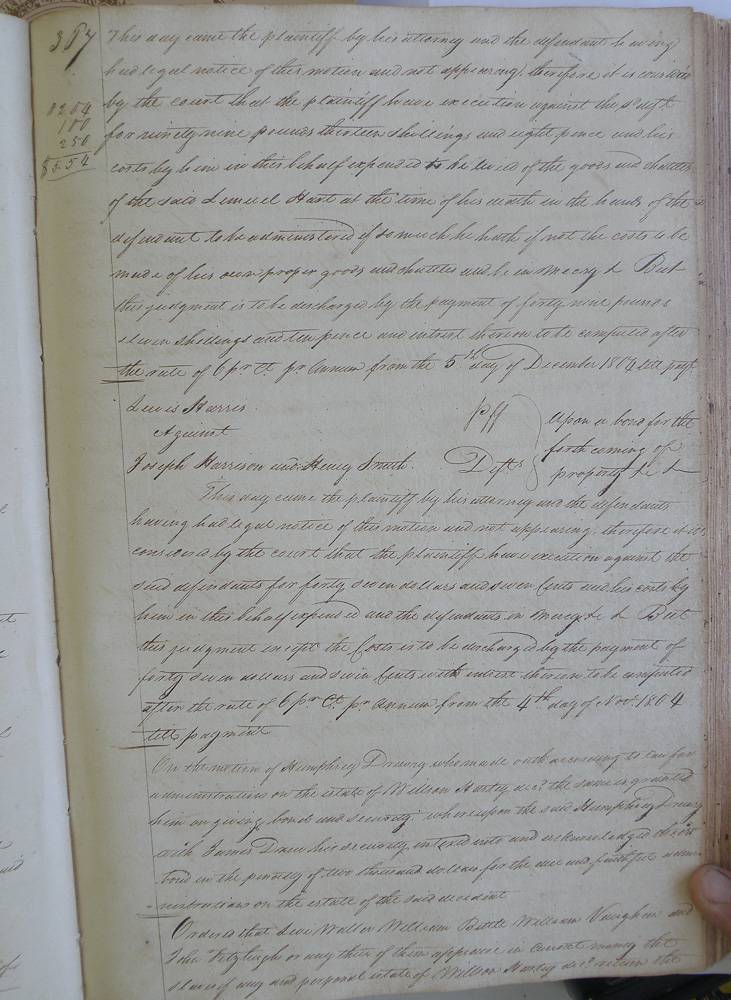 387
This day came the plaintiff by his attorney and the defendant having
had legal notice of this motion and not appearing, therefore it is considd
by the court that the plaintiff have execution against the sd deft
for ninety nine pounds thirteen shillings and eight pence and his
costs by him in this behalf expended to be levied of the goods and chattles
of the said Lemuel Hart at the time of his death in the hands of the
defendant to be administered if so much he hath if not the costs to be
made of his own proper goods and chattles and be in mercy & But
this judgment is to be discharged by the payment of forty nine pounds
eleven shillings and ten pence and intrest thereon to be computed after
the rate of 6 pr Ct pr Annum from the 5th day of December 1804 till payt
0204
100
250
$5.54
Lewis Harris Plff
Against
Joseph Harrison and Henry Smith Defts
Upon a bond for the
forth coming of
property &c &
This day came the plaintiff by his attorney and the defendants
having had legal notice of this motion and not appearing, therefore it is
considered by the court that the plaintiff have execution against the
said defendants for forty seven dollars and seven Cents and his costs by
him in this behalf expended and the defendants in mercy &c & But
this judgment except the Costs is to be discharged by the payment of
forty seven dollars and seven Cents with intrest thereon to be computed
after the rate of 6 pr Ct pr Annum from the 4th day of Novr 1804
till payment
On the motion of Humphrey Drewry who made oath according to Law for
administration on the estate of Willson Harty decd the same is granted
him on giving bond and security, whereupon the said Humphrey Drewry
with James Drew his security entered into and acknowledged their
bond in the penalty of two thousand dollars for the due and faithful admi
nistration on the estate of the said decedent
Ordered that Waller William Battle William Vaughan and
John Fitzhugh or any three of them appraise in Current money the
slaves if any and personal estate of Willson Harty decd return the